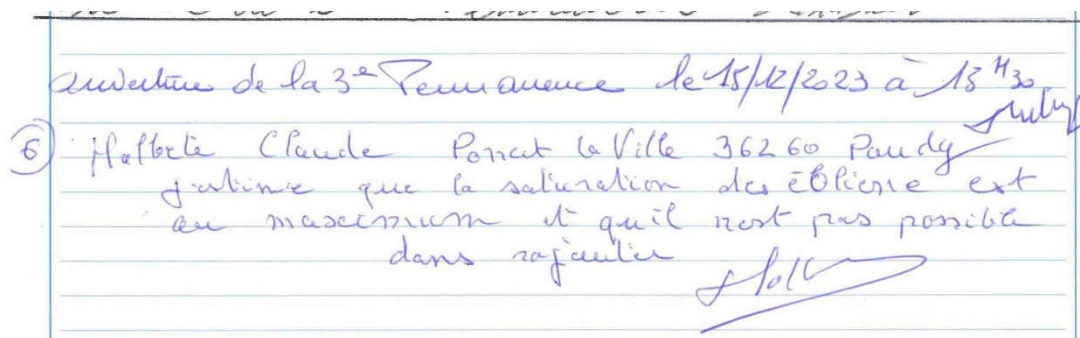 ouverture de la 3e Permanence le 15/12/2023 à 13H30
6 Claude la Ville 36260 Paudy
j'estime que la saturation des éoliene est
au maximum et quil nest pas possible
dans rajouter